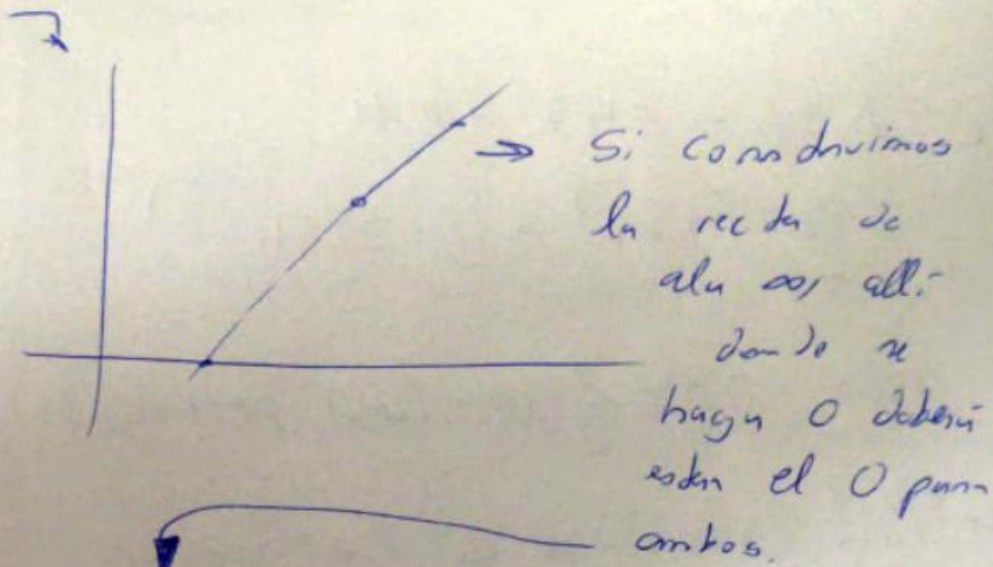 → Si construimos
la recta de
ala ∞, allí
donde se
haga 0 deberá
estar el 0 para
ambos.